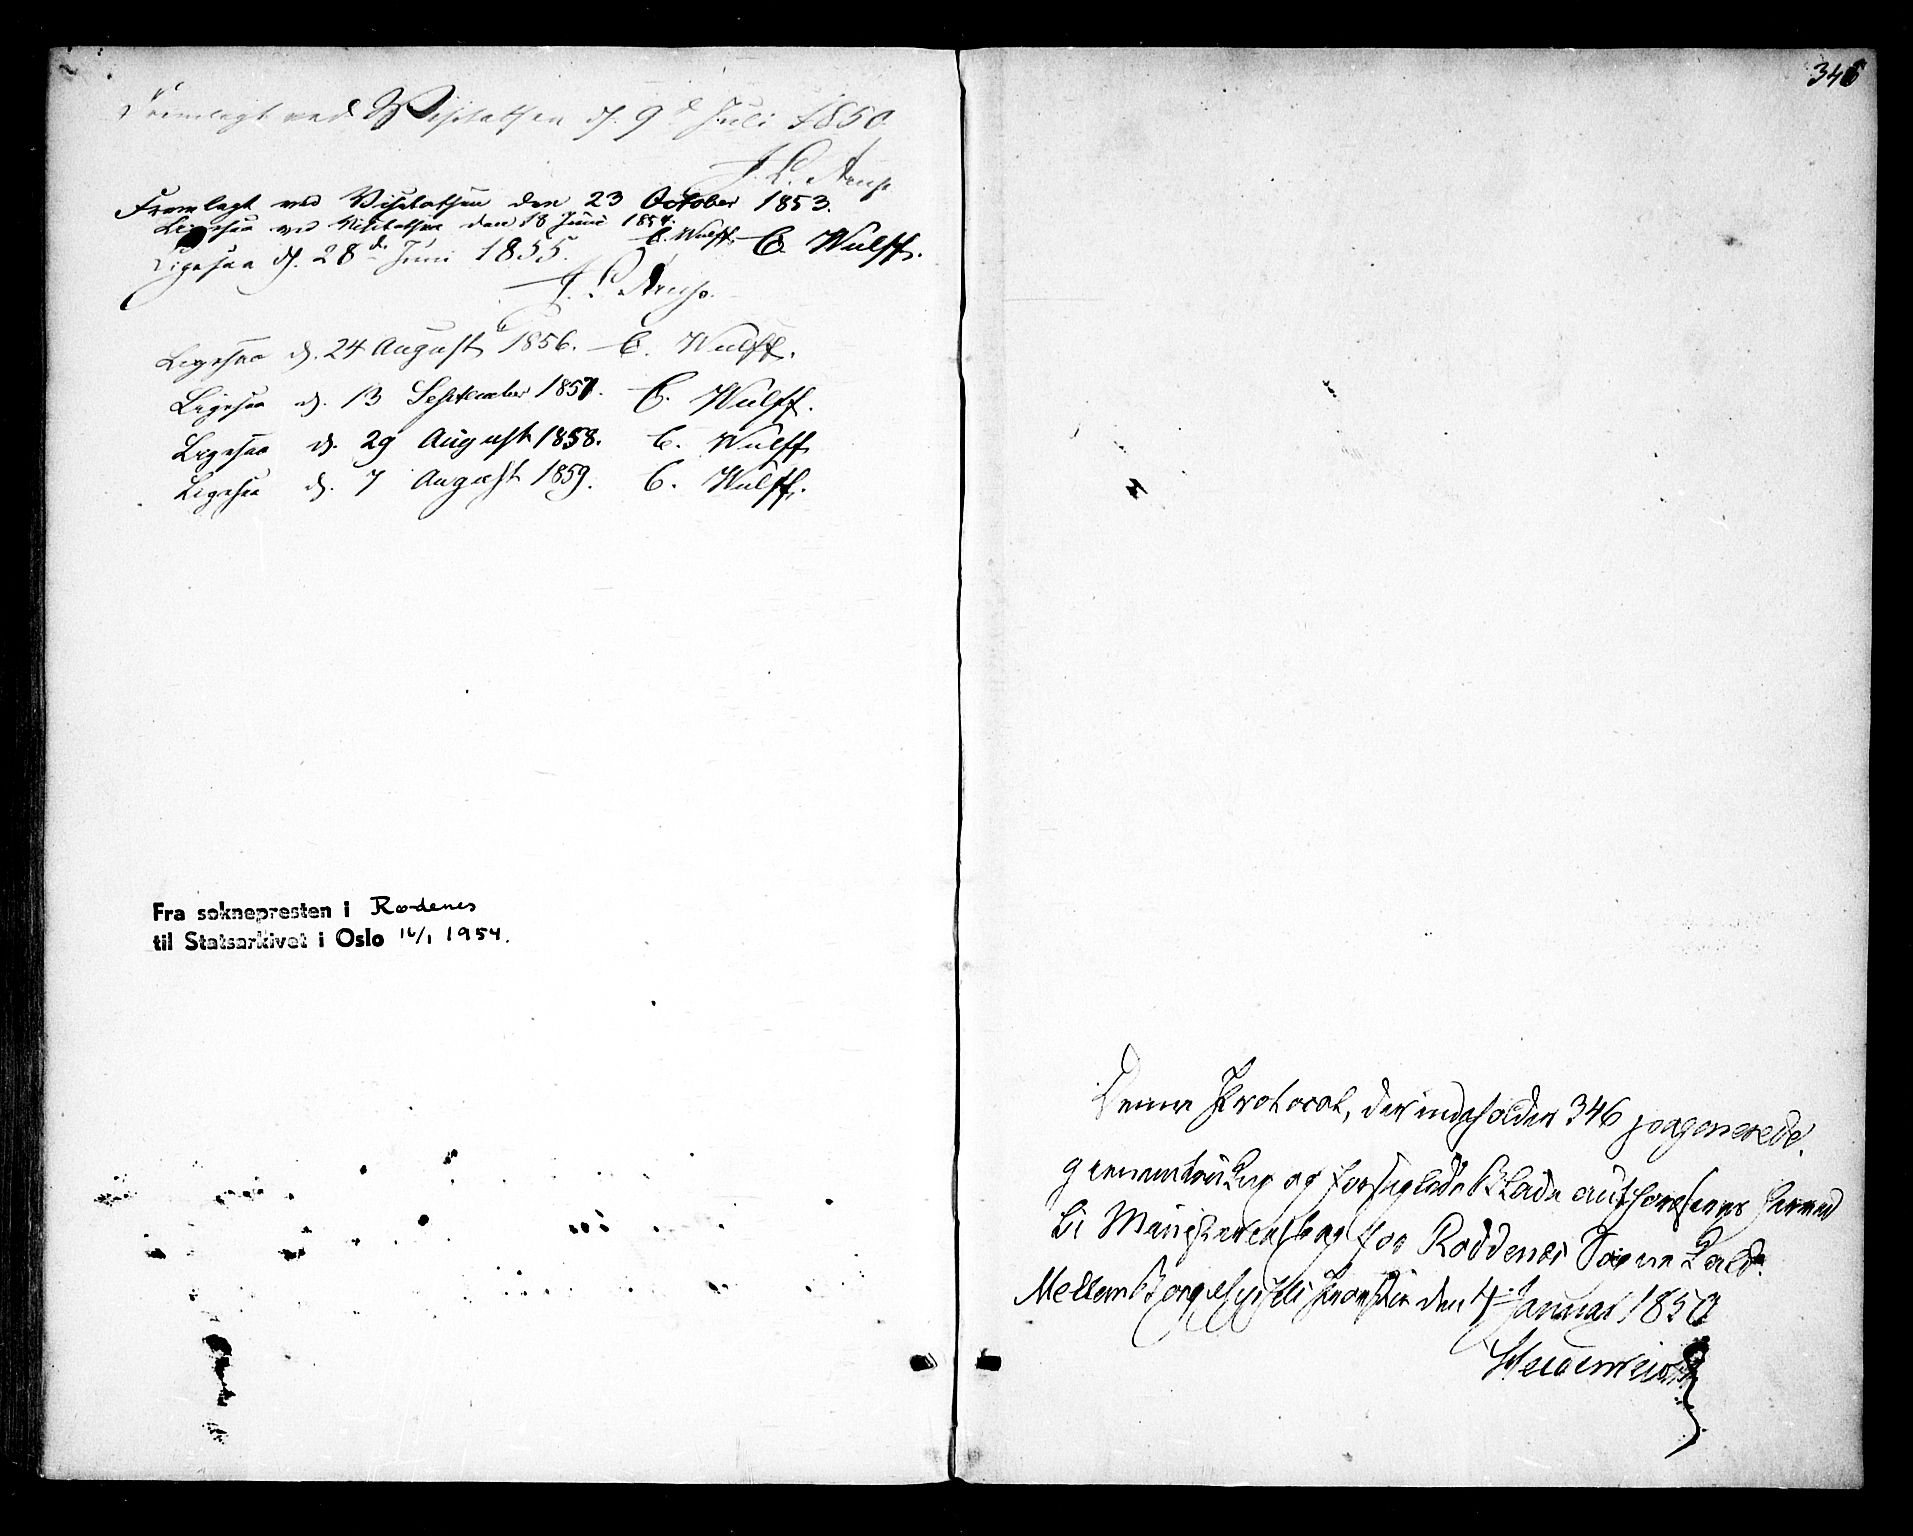 Fremlagt ved Visitatsen d. 9d Juli 1850
J. L. Arup
Fremlagt ved Visitatsen den 23 October 1853.
Ligesaa ved Visitatsen den 18 Juni 1854.
C. Wulff. C. Wulff.
Ligesaa d. 28d Juni 1855.
J. L. Arup.
Ligesaa d. 24 August 1856. C. Wulff.
Ligesaa d. 13 September 1857. C. Wulff.
Ligesaa d. 29 August 1858. C. Wulff
Ligesaa d. 7 August 1859. C. Wulff.
Fra soknepresten i Rødenes
til Statsarkivet i Oslo 16/1 1954.
346
Denne Protocol, der indeholder 346 paginerede,
gjennemtrukne og forseglede Blade authoriseres herved
til Ministerialbog for Røddenes Sognekald.
Mellem Borgesyssels Provstie den 4 Januar 1850